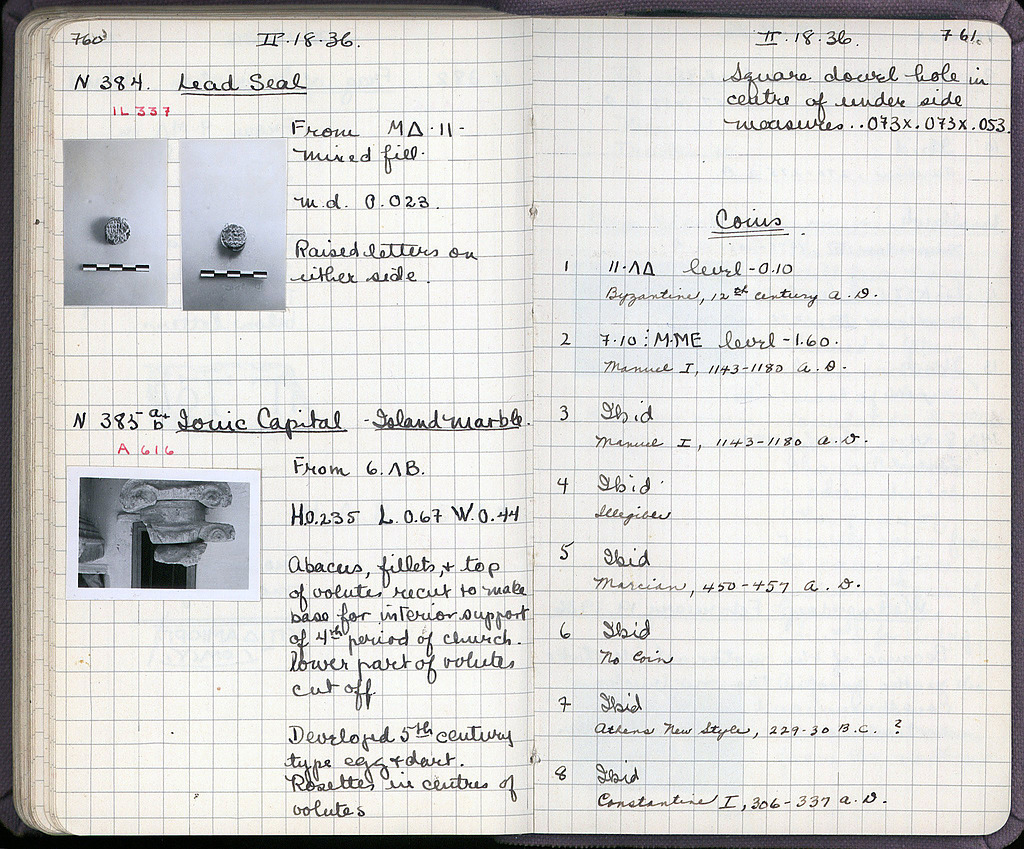 760
II·18·36.
N 384. Lead Seal
IL 337
From ΜΔ·11-
mixed fill.
m.d. 0.023.
Raised letters on
either side.
N 385 a+b Ionic Capital - Island marble.
A 616
From 6.ΛΒ.
H.0.235 L.0.67 W.0.44
Abacus, fillets, + top
of volutes recut to make
base for interior support
of 4th period of church.
lower part of volutes
cut off.
Developed 5th century
type egg + dart.
Rosettes in centres of
volutes
II·18·36.
761.
Square dowel hole in
centre of under side
measures..073x.073x.053.
Coins
1 11·ΛΔ level -0.10
Byzantine, 12th century A.D.
2 7·10:Μ·ΜΕ level -1.60.
Manuel I, 1143-1180 A.D.
3 Ibid
Manuel I, 1143-1180 A.D.
4 Ibid
Illegible
5 Ibid
Marcian, 450-457 A.D.
6 Ibid
No Coin
7 Ibid
Athens New Style, 229-30 B.C. ?
8 Ibid
Constantine I, 306-337 A.D.